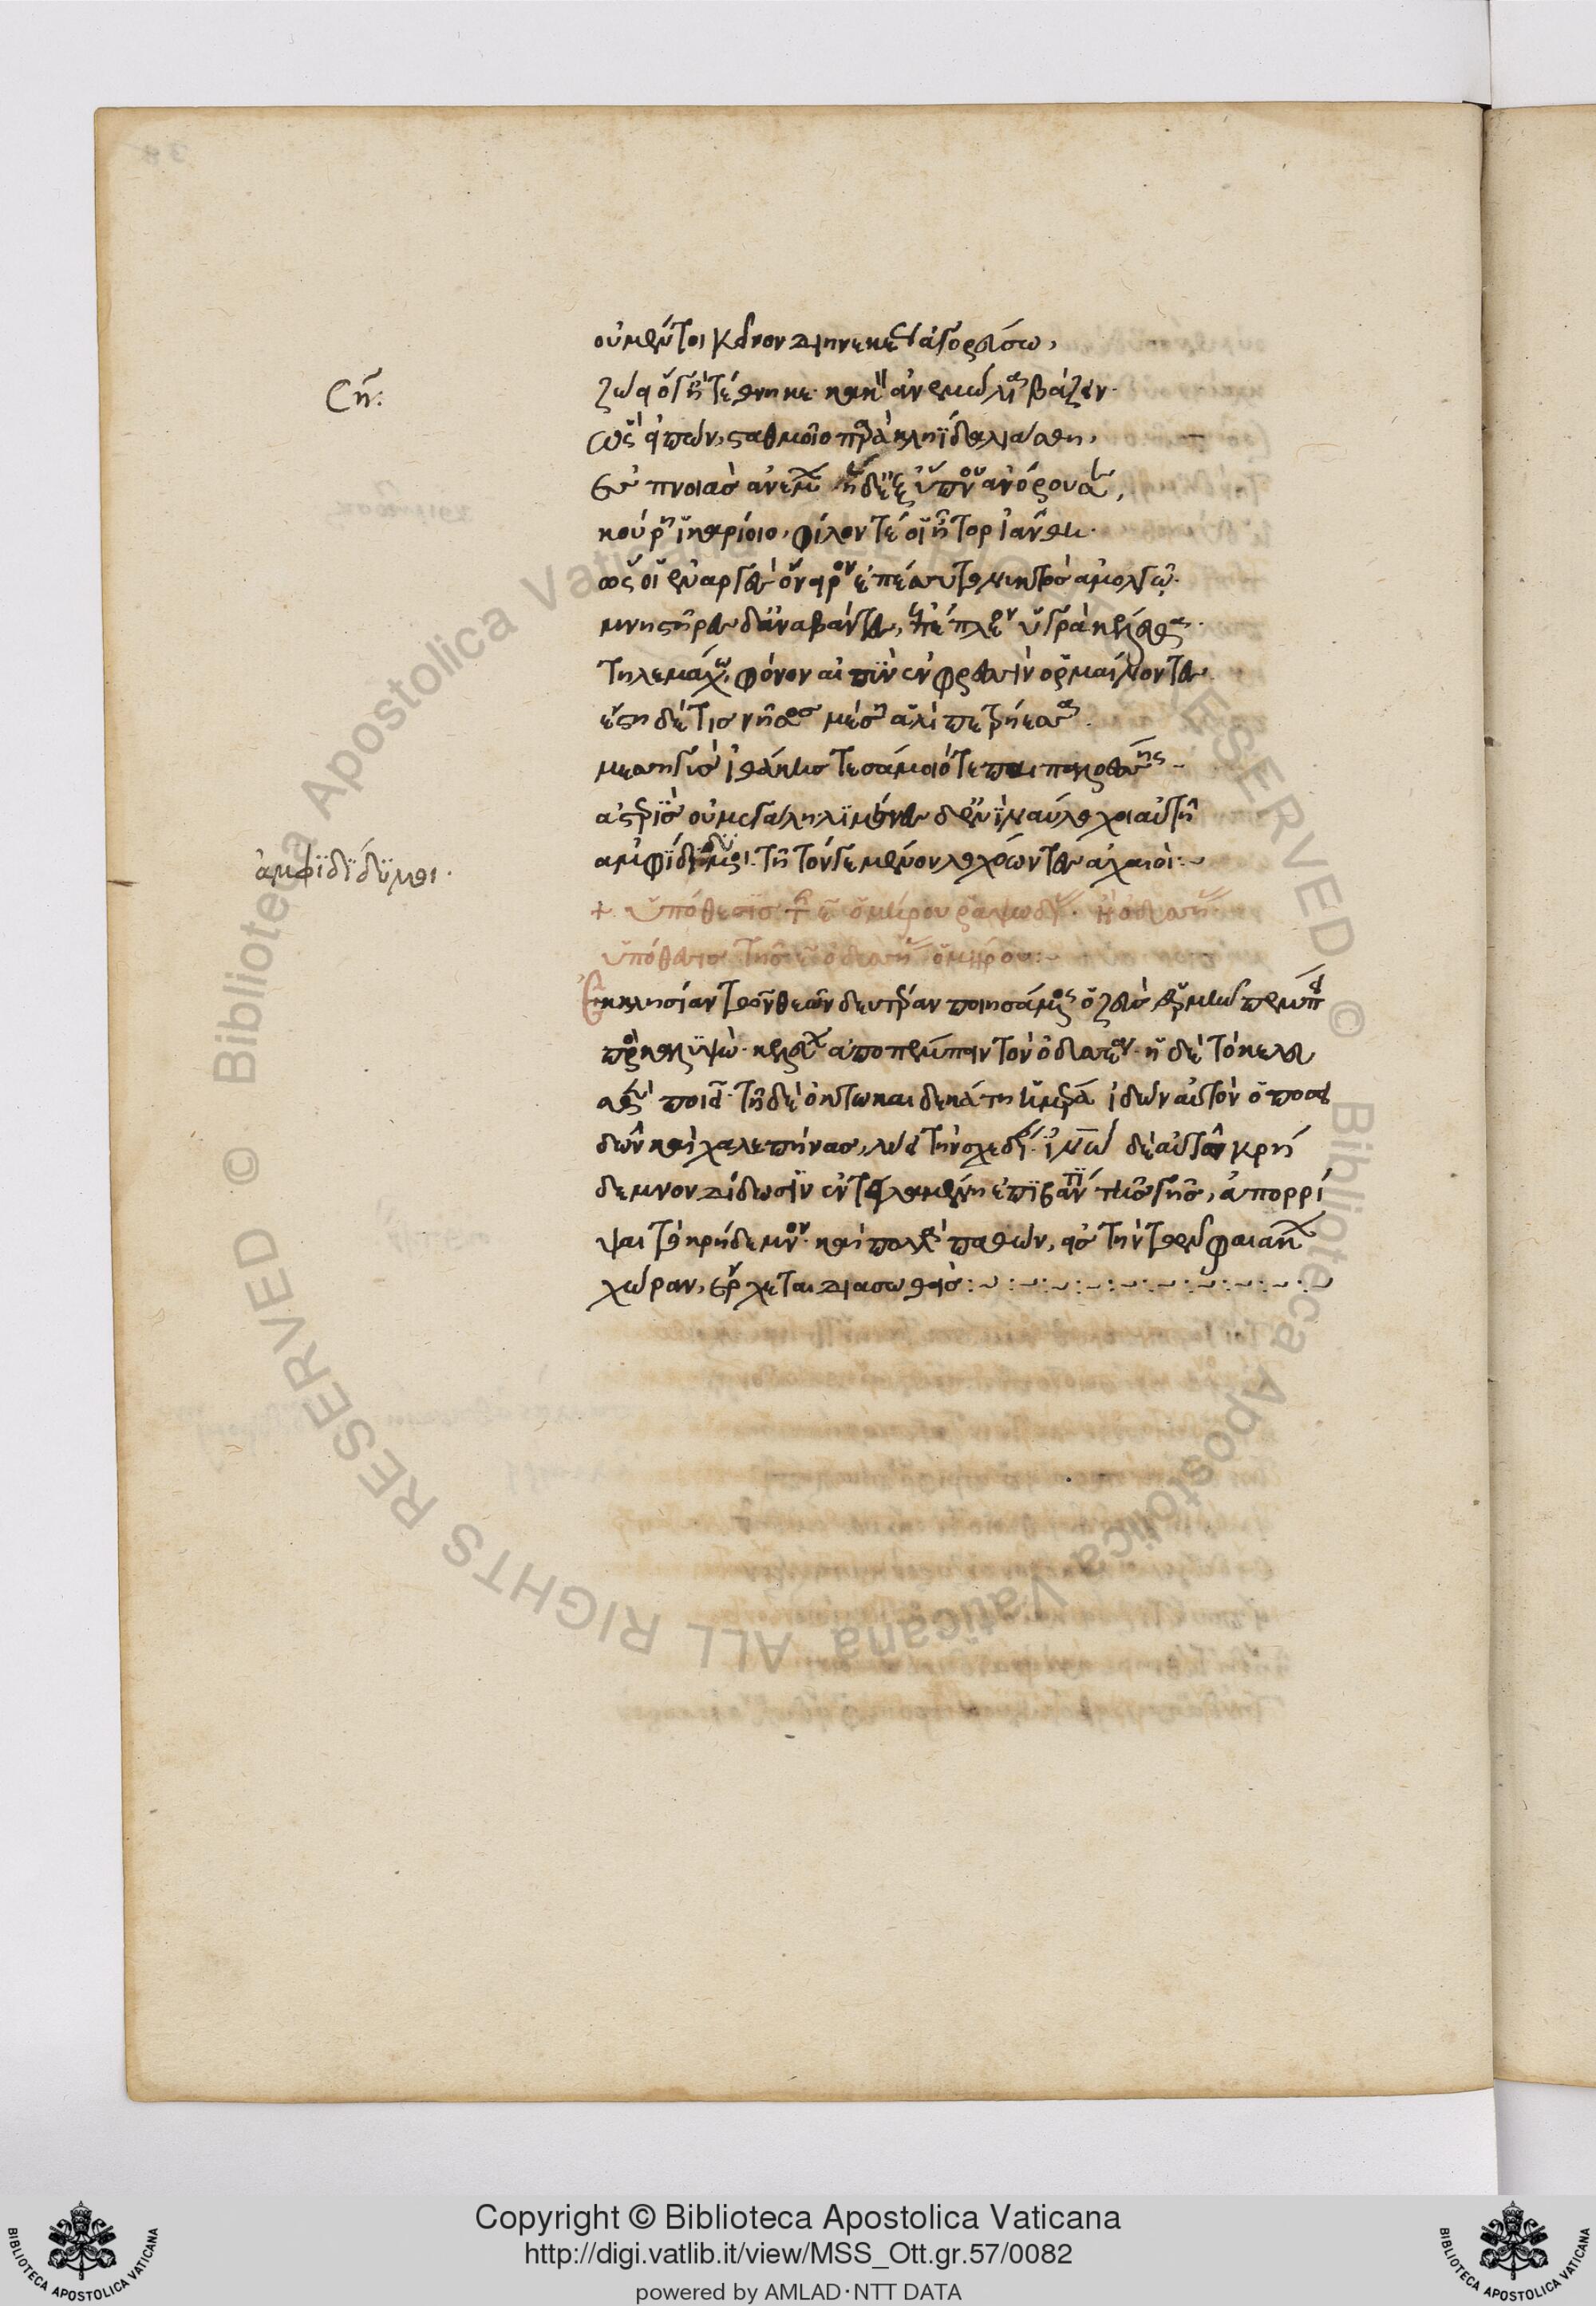 οὐ μέντοι κεῖνον διηνεκέως ἀγορεύσω,
ζώει ὅγ' ἢ τέθνηκε· κακὸν δ' ἀνεμώλια βάζειν·
Ση:
ὣς εἰπὼν, σταθμοῖο παρὰ κληῗδα λιάσθη,
ἐς πνοιὰς ἀνέμων· ἡ δ' ἐξ ὕπνου ἀνόρουσε,
κούρη ἰκαρίοιο, φίλον δέ οἱ ἦτορ ἰάνθη·
ὥς οἱ ἐναργὲς ὄνειρον ἐπέσσυτο νυκτὸς ἀμολγῷ·
μνηστῆρες δ' ἀναβάντες, ἐπέπλεον ὑγρὰ κέλευθα·
τηλεμάχῳ, φόνον αἰπὺν ἐν φρεσὶν ὁρμαίνοντες
ἔστι δέ τις νῆσος μέσῃ ἁλὶ πετρήεσσα·
μεσσηγὺς ἰθάκης τε σάμοιό τε παιπαλοέσσης
ἀστερὶς οὐ μεγάλη· λιμένες δ' ἔνι ναύλοχοι αὐτῇ
ἀμφίδυμοι· τῇ τόνγε μένον λοχόωντες ἀχαιοί:~
ἀμφϊδϊδύμοι·
+ ὑπόθεσις τῆς ε ὁμήρου ῥαψωδίας· ἢ ὀδυσσείας
ὑπόθεσις τῆς ε ὀδυσσείας ὁμήρου:~
Ἐκκλησίαν τῶν θεῶν δευτέραν ποιησάμενος ὁ ζεὺς ἑρμῆν πέμπει
πρὸς καλυψὼ· κελεύων ἀποπέμπειν τὸν ὀδυσσέα· ἡ δὲ τὸ κελευ
σθὲν ποιεῖ· τῇ δὲ ὀκτωκαιδεκάτη ἡμέρα ἰδὼν αὐτὸν ὁ ποσει
δῶν καὶ χαλεπήνας, λύει τὴν σχεδίαν· ἰνὼ δὲ αὐτῶ κρή
δεμνον δίδωσιν ἐντειλαμένη ἐπιβάντι τῆς γῆς, ἀπορρί
ψαι τὸ κρήδεμνον· καὶ πολλὰ παθὼν, εἰς τὴν τῶν φαιάκων
χώραν, ἔρχεται διασωθείς:~:~:~:~:~:~:~:~
Copyright © Biblioteca Apostolica Vaticana
http://digi.vatlib.it/view/MSS_Ott.gr.57/0082
powered by AMLAD·NTT DATA
BIBLIOTECA APOSTOLICA VATICANA
BIBLIOTECA APOSTOLICA VATICANA
© Biblioteca Apostolica Vaticana ALL RIGHTS RESERVED
© Biblioteca Apostolica Vaticana ALL RIGHTS RESERVED